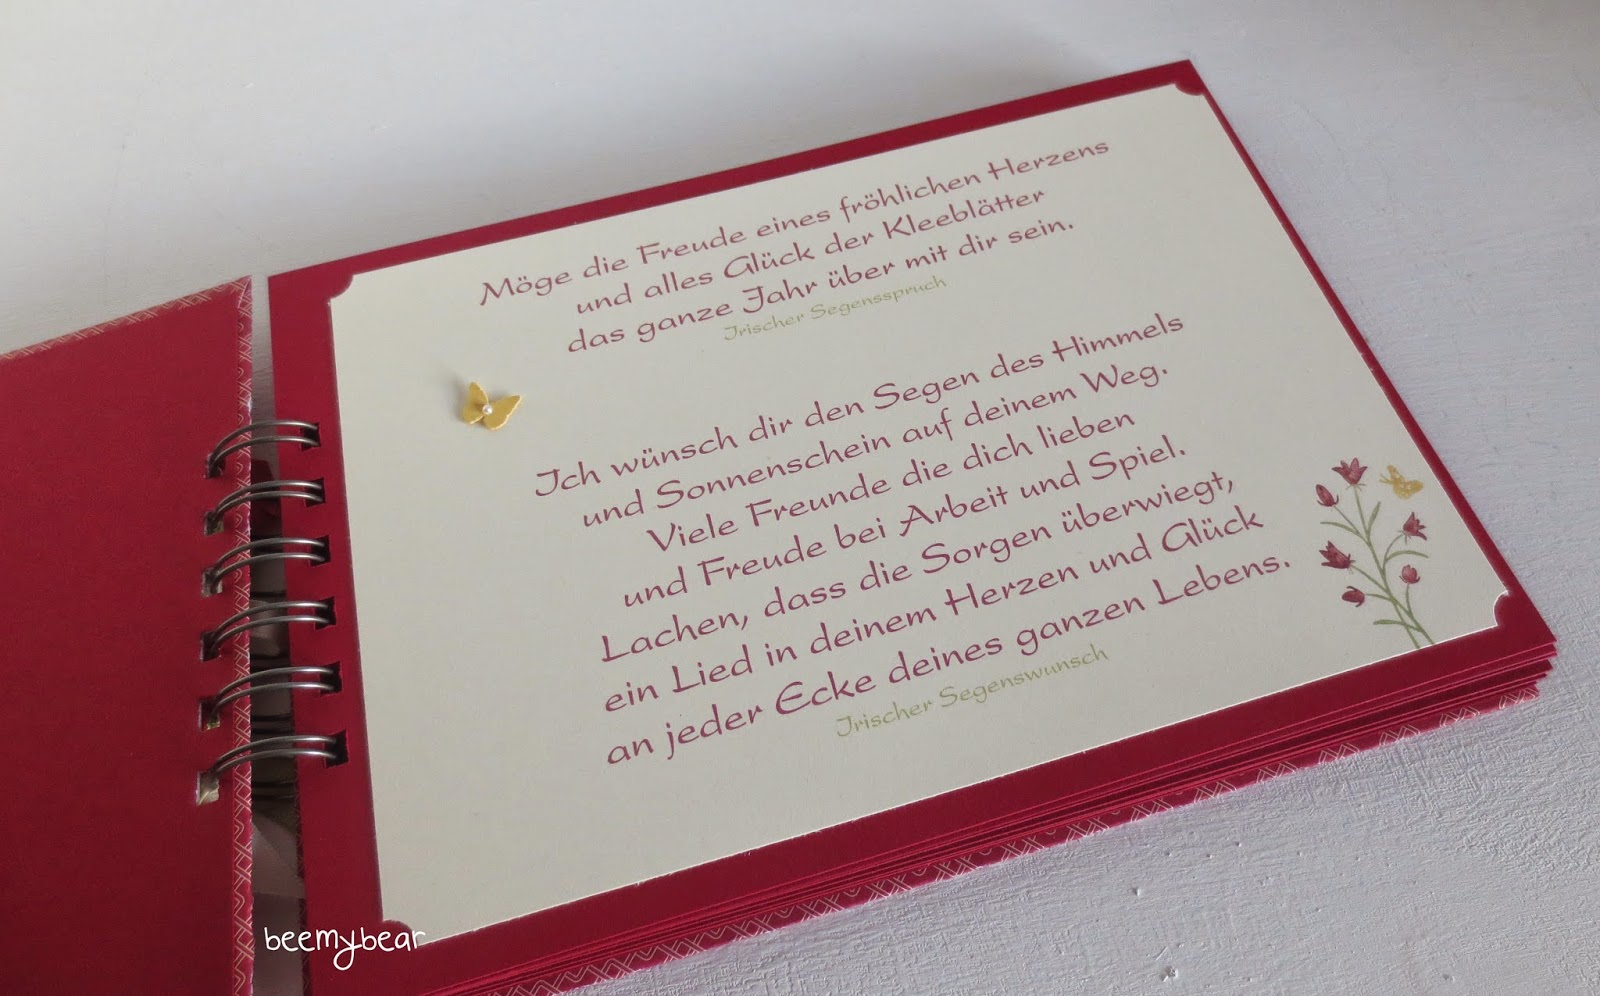 Möge die Freude eines fröhlichen Herzens
und alles Glück der Kleeblätter
das ganze Jahr über mit dir sein.
Irischer Segensspruch
Ich wünsch dir den Segen des Himmels
und Sonnenschein auf deinem Weg.
Viele Freunde die dich lieben
und Freude bei Arbeit und Spiel.
Lachen, dass die Sorgen überwiegt,
ein Lied in deinem Herzen und Glück
an jeder Ecke deines ganzen Lebens.
Irischer Segenswunsch
beemybear